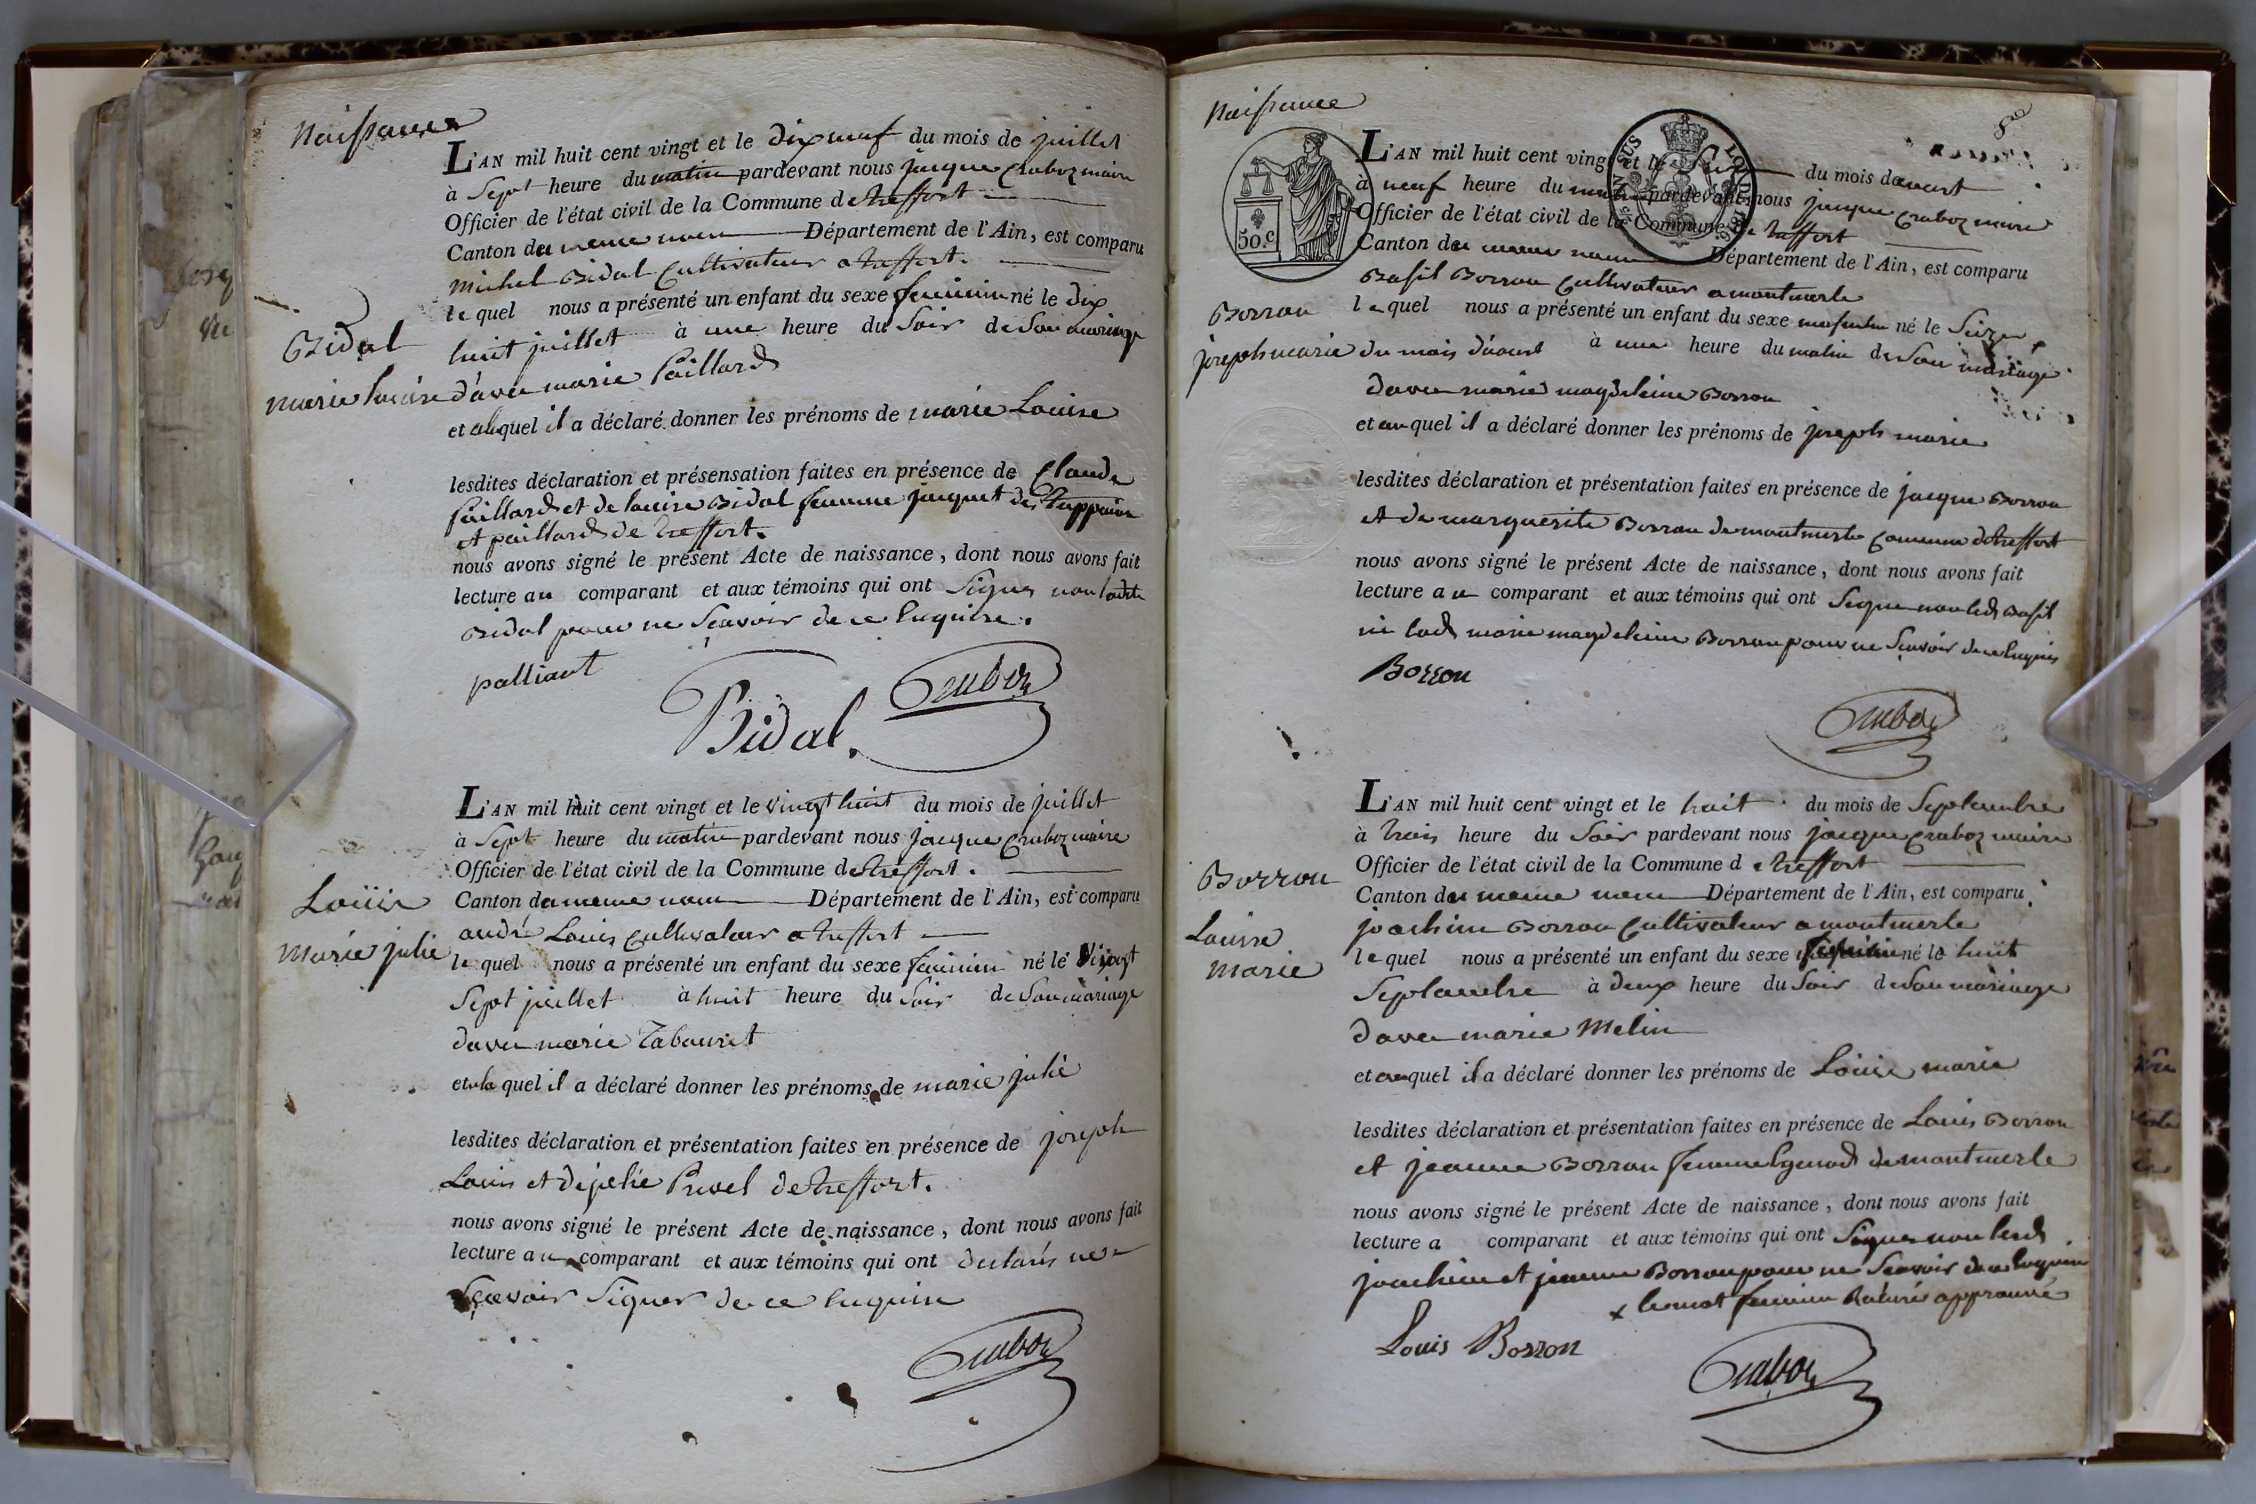 Naissance
L'AN mil huit cent vingt et le dix neuf du mois de juillet
à Sept heure du matin pardevant nous jacque Craboz maire
Officier de l'état civil de la Commune de treffort
Canton du meme nom Département de l'Ain, est comparu
michel Bidal Cultivateur a treffort.
le quel nous a présenté un enfant du sexe feminin né le dix
Bidal
huit juillet à une heure du Soir de Son mariage
marie louise
d'avec marie Paillard
et auquel il a déclaré donner les prénoms de marie Louise
lesdites déclaration et présensation faites en présence de Claude
paillard et de louise Bidal femme jacquet
et paillard de treffort.
nous avons signé le présent Acte de naissance, dont nous avons fait
lecture au comparant et aux témoins qui ont Signer non ladite
Bidal pour ne Scavoir de ce Enquise.
palliant
Bidal. Craboz
L'AN mil huit cent vingt et le vingt huit du mois de juillet
à Sept heure du matin pardevant nous jacque Craboz maire
Officier de l'état civil de la Commune de treffort.
Louis
Canton du meme nom Département de l'Ain, est comparu
andré Louis Cultivateur a treffort
Marie julie
le quel nous a présenté un enfant du sexe feminin né le vingt
Sept juillet à huit heure du Soir de Son mariage
d'avec marie Tabouret
et a la quel il a déclaré donner les prénoms de marie julie
lesdites déclaration et présentation faites en présence de joseph
Louis et de julie Privel de treffort.
nous avons signé le présent Acte de naissance, dont nous avons fait
lecture au comparant et aux témoins qui ont declarés ne
Scavoir Signer de ce Enquise
Craboz
Naissance
50.c
L'AN mil huit cent vingt et le du mois daoust
à neuf heure du matin pardevant nous jacque Craboz maire
Officier de l'état civil de la Commune de treffort
Canton du meme nom Département de l'Ain, est comparu
Basil Borron Cultivateur a montmerle
Borron
le quel nous a présenté un enfant du sexe masculin né le Seize
joseph marie
du mois d'aoust à une heure du matin de Son mariage
davec marie magdeleine Borron
et au quel il a déclaré donner les prénoms de joseph marie
lesdites déclaration et présentation faites en présence de jacque Borron
et de marguerite Borron de montmerle Commune de treffort
nous avons signé le présent Acte de naissance, dont nous avons fait
lecture au comparant et aux témoins qui ont Signer non led Basil
ni lad marie magdeleine Borron pour ne Scavoir de ce Enquis
Borron
Craboz
L'AN mil huit cent vingt et le huit du mois de Septembre
à trois heure du Soir pardevant nous jacque Craboz maire
Officier de l'état civil de la Commune de treffort
Borron
Canton du meme nom Département de l'Ain, est comparu
joachim Borron Cultivateur a montmerle
Louise
marie
le quel nous a présenté un enfant du sexe feminin né le huit
Septembre à deux heure du Soir de Son mariage
davec marie Melin
et auquel il a déclaré donner les prénoms de Louise marie
lesdites déclaration et présentation faites en présence de Louis Borron
et jeanne Borron femme de montmerle
nous avons signé le présent Acte de naissance, dont nous avons fait
lecture a comparant et aux témoins qui ont Signer non lesd
joachim et jeanne Borron pour ne Scavoir de ce Enquis
x le mot feminin Raturé approuvé
Louis Borron
Craboz